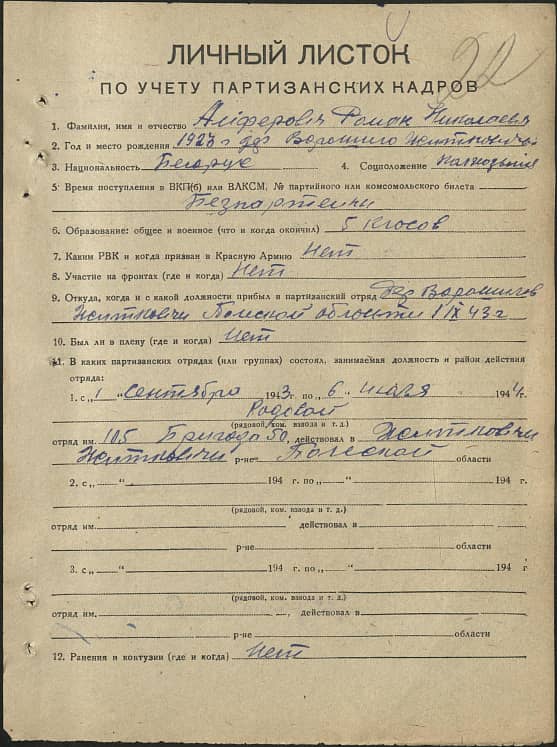 22
ЛИЧНЫЙ ЛИСТОК
ПО УЧЕТУ ПАРТИЗАНСКИХ КАДРОВ
1. Фамилия, имя и отчество Алферович Роман Николаевич
2. Год и место рождения 1923 г дер Ворошило Житковичи
3. Национальность Беларус 4. Соцположение
5. Время поступления в ВКП(б) или ВЛКСМ, № партийного или комсомольского билета
Безпартейни
6. Образование: общее и военное (что и когда окончил) 5 класов
7. Каким РВК и когда призван в Красную Армию Нет
8. Участие на фронтах (где и когда) Нет
9. Откуда, когда и с какой должности прибыл в партизанский отряд дер
Житковичи Полской области 1 IX 43 г
10. Был ли в плену (где и когда) Нет
11. В каких партизанских отрядах (или группах) состоял, занимаемая должность и район действия
отряда:
1. с „1“ Сентября 1943 г. по „6“ июля 1944 г.
Радовой
(рядовой, ком. взвода и т. д.)
отряд им. 105 Бригада 50, действовал в Житковичи
Житковичи р-не Полеской области
2. с „ “ 194 г. по „ “ 194 г.
(рядовой, ком. взвода и т. д.)
отряд им. действовал в
р-не области
3. с „ “ 194 г. по „ “ 194 г
(рядовой, ком. взвода и т. д.)
отряд им. , действовал в
р-не области
12. Ранения и контузии (где и когда) Нет